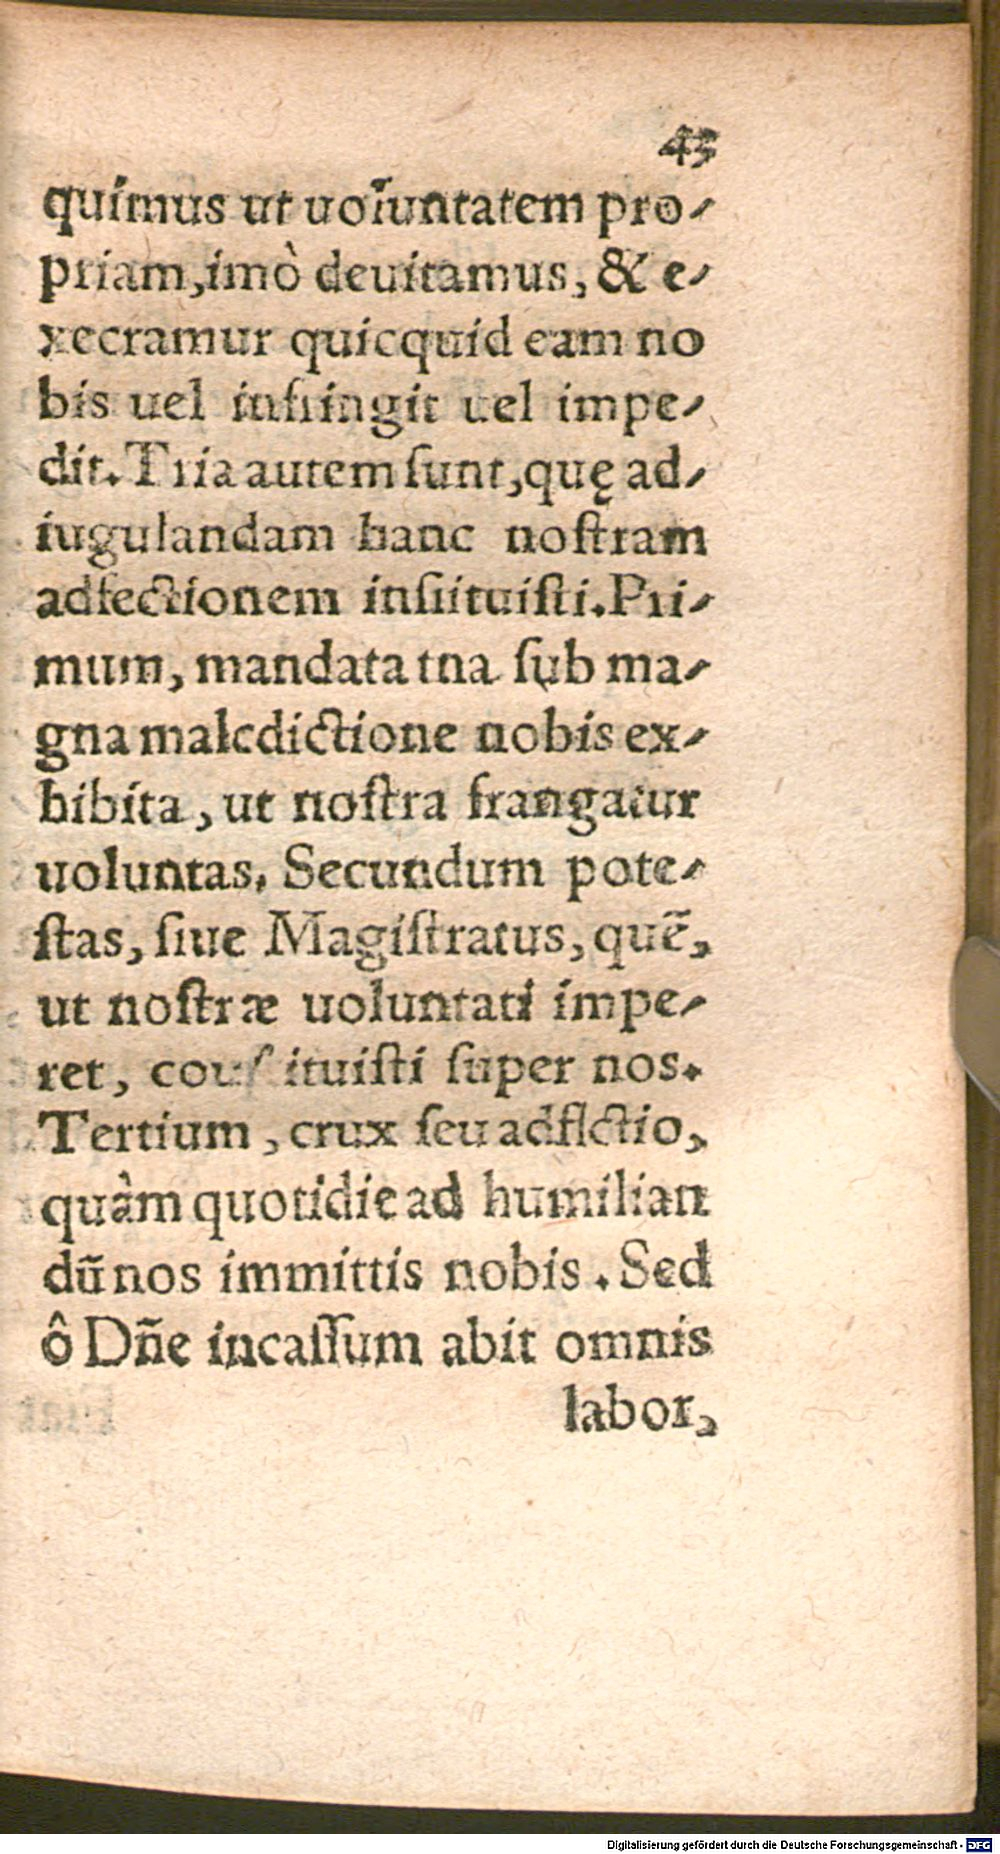 45
quimus ut uoluntatem pro-
priam, imò deuitamus, & e-
xecramur quicquid eam no
bis uel infringit uel impe-
dit. Tria autem sunt, quę ad-
iugulandam hanc nostram
adfectionem instituisti. Pri-
mum, mandata tna sub ma-
gna maledictione nobis ex-
hibita, ut nostra frangatur
uoluntas. Secundum pote-
stas, siue Magistratus, quẽ,
ut nostræ uoluntati impe-
ret, constituisti super nos.
Tertium, crux seu adflctio,
quàm quotidie ad humilian
dũ nos immittis nobis. Sed
ô Dñe incassum abit omnis
labor,
Digitalisierung gefördert durch die Deutsche Forschungsgemeinschaft - DFG